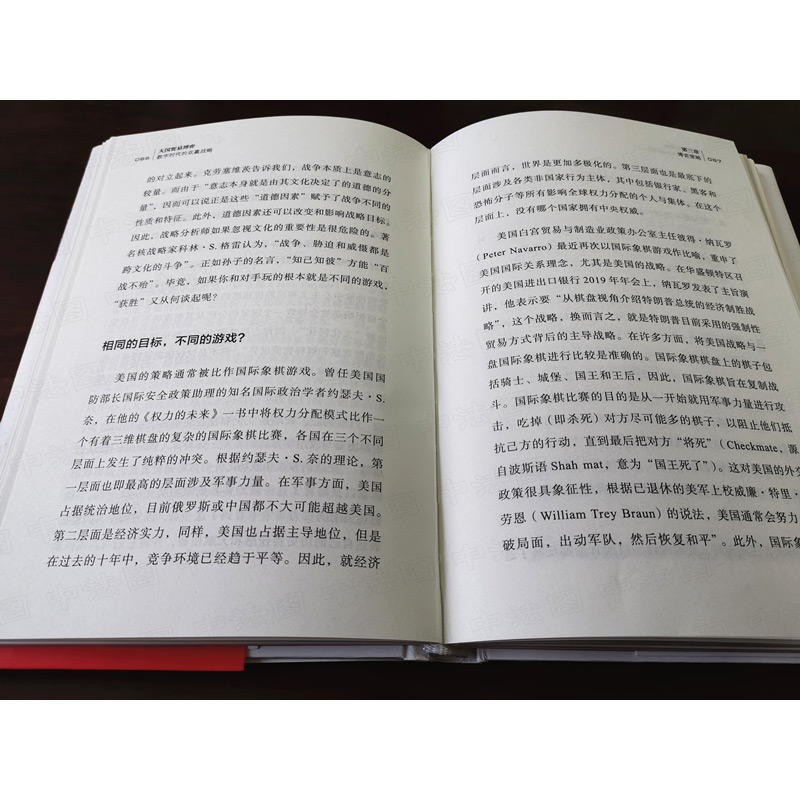 086 大国贸易博弈
数字时代的双赢战略
的对立起来。克劳塞维茨告诉我们，战争本质上是意志的
较量。而由于“意志本身就是由其文化决定了的道德的分
量”，因而可以说正是这些“道德因素”赋予了战争不同的
性质和特征。此外，道德因素还可以改变和影响战略目标。
因此，战略分析师如果忽视文化的重要性是很危险的。著
名核战略家科林·S. 格雷认为，“战争、胁迫和威慑都是
跨文化的斗争”。正如孙子的名言，“知己知彼”方能“百
战不殆”。毕竟，如果你和对手玩的根本就是不同的游戏，
“获胜”又从何谈起呢？
相同的目标，不同的游戏？
美国的策略通常被比作国际象棋游戏。曾任美国国
防部长国际安全政策助理的知名国际政治学者约瑟夫·S.
奈，在他的《权力的未来》一书中将权力分配模式比作一
个有着三维棋盘的复杂的国际象棋比赛，各国在三个不同
层面上发生了纯粹的冲突。根据约瑟夫·S. 奈的理论，第
一层面也即最高的层面涉及军事力量。在军事方面，美国
占据统治地位，目前俄罗斯或中国都不大可能超越美国。
第二层面是经济实力，同样，美国也占据主导地位，但是
在过去的十年中，竞争环境已经趋于平等。因此，就经济
第三章
博弈策略 087
层面而言，世界是更加多极化的。第三层面也是最底下的
层面涉及各类非国家行为主体，其中包括银行家、黑客和
恐怖分子等所有影响全球权力分配的个人与集体。在这个
层面上，没有哪个国家拥有中央权威。
美国白宫贸易与制造业政策办公室主任彼得·纳瓦罗
（Peter Navarro）最近再次以国际象棋游戏作比喻，重申了
美国国际关系理念，尤其是美国的战略。在华盛顿特区召
开的美国进出口银行 2019 年年会上，纳瓦罗发表了主旨演
讲，他表示要“从棋盘视角介绍特朗普总统的经济制胜战
略”，这个战略，换而言之，就是特朗普目前采用的强制性
贸易方式背后的主导战略。在许多方面，将美国战略与一
盘国际象棋进行比较是准确的。国际象棋棋盘上的棋子包
括骑士、城堡、国王和王后，因此，国际象棋旨在复制战
斗。国际象棋比赛的目的是从一开始就用军事力量进行攻
击，吃掉（即杀死）对方尽可能多的棋子，以阻止他们抵
抗己方的行动，直到最后把对方“将死”（Checkmate，源
自波斯语 Shah mat，意为“国王死了”）。这对美国的外交
政策很具象征性，根据已退休的美军上校威廉·特里·
劳恩（William Trey Braun）的说法，美国通常会努力
破局面，出动军队，然后恢复和平”。此外，国际象